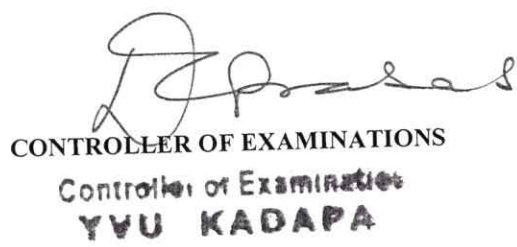 CONTROLLER OF EXAMINATIONS
Controller of Examinations
YVU KADAPA